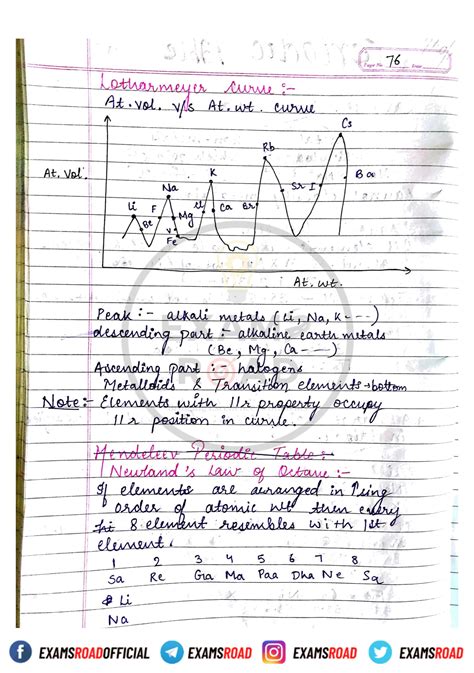 Page No. 76
Date
Lotharmeyer Curve :-
At. vol. v/s At. wt. curve
Cs
Rb
At. Vol.
K
Na
Li
Be
F
Mg
Cl
Ca
Br
Sr
I
Ba
V
Fe
At. wt.
Peak :- alkali metals (Li, Na, K ---)
descending part :- alkaline earth metals
(Be, Mg, Ca ---)
Ascending part :- halogens
Metalloids & Transition elements → bottom
Note :- Elements with 11r property occupy
11r position in curve.
Mendeleev Periodic Table :
Newland's Law of Octane :-
If elements are arranged in ↑sing
order of atomic wt then every
8 element resembles with 1st
element.
1 2 3 4 5 6 7 8
Sa Re Ga Ma Paa Dha Ne Sa
Li
Na
EXAMSROADOFFICIAL EXAMSROAD EXAMSROAD EXAMSROAD